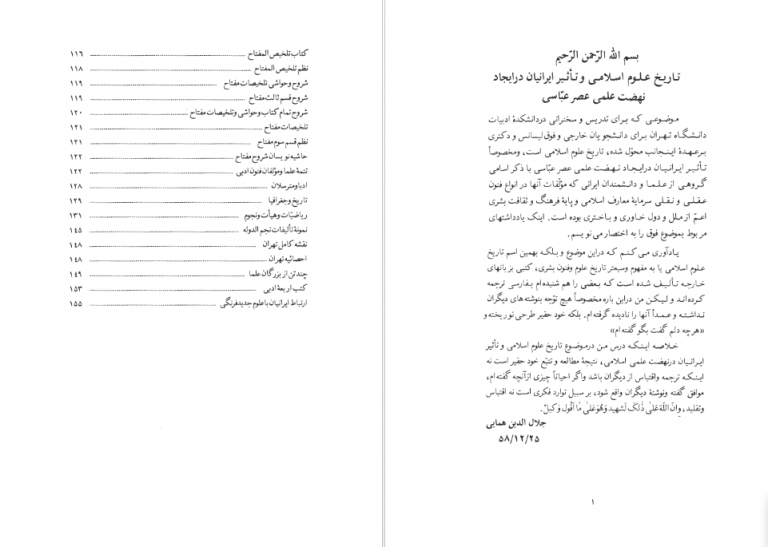 بسم الله الرّحمن الرّحیم
تاریخ علوم اسلامی و تأثیر ایرانیان در ایجاد
نهضت علمی عصر عبّاسی
موضوعی که برای تدریس و سخنرانی در دانشکدهٔ ادبیات
دانشگاه تهران برای دانشجویان خارجی و فوق لیسانس و دکتری
برعهدهٔ اینجانب محوّل شده، تاریخ علوم اسلامی است، ومخصوصاً
تأثیر ایرانیان در ایجاد نهضت علمی عصر عبّاسی با ذکر اسامی
گروهی از علما و دانشمندان ایرانی که مؤلّفات آنها در انواع فنون
عقلی و نقلی سرمایهٔ معارف اسلامی و پایهٔ فرهنگ و ثقافت بشری
اعمّ از ملل و دول خاوری و باختری بوده است. اینک یادداشتهای
مربوط بموضوع فوق را به اختصار می نویسم.
یادآوری می کنم که در این موضوع و بلکه بهمین اسم تاریخ
علوم اسلامی یا به مفهوم وسیعتر تاریخ علوم وفنون بشری، کتبی بزبانهای
خارجه تألیف شده است که بعضی را هم شنیده ام بفارسی ترجمه
کرده اند و لیکن من در این باره مخصوصاً هیچ توّجه بنوشته های دیگران
نداشته و عمداً آنها را نادیده گرفته ام. بلکه خود حقیر طرحی نو ریخته و
«هرچه دلم گفت بگو گفته ام»
خلاصه اینکه درس من در موضوع تاریخ علوم اسلامی و تأثیر
ایرانیان در نهضت علمی اسلامی، نتیجهٔ مطالعه و تتبّع خود حقیر است نه
اینکه ترجمه واقتباس از دیگران باشد واگر احیاناً چیزی از آنچه گفته ام،
موافق گفته ونوشتهٔ دیگران واقع شود، بر سبیل توارد فکری است نه اقتباس
وتقلید، وانّ اللهَ عَلیٰ ذٰلکَ لَشهید وَهُوَ عَلیٰ مٰا أقُول وَکیلٌ.
جلال الدین همایی
۵۸/۱۲/۲۵
۱
کتاب تلخیص المفتاح ........ ۱۱۶
نظم تلخیص المفتاح ........ ۱۱۸
شروح وحواشی تلخیصات مفتاح ........ ۱۱۹
شروح قسم ثالث مفتاح ........ ۱۱۹
شروح تمام کتاب وحواشی وتلخیصات مفتاح ........ ۱۲۰
تلخیصات مفتاح ........ ۱۲۱
نظم قسم سوم مفتاح ........ ۱۲۱
حاشیه نویسان شروح مفتاح ........ ۱۲۲
تتمهٔ علما ومؤلفان فنون ادبی ........ ۱۲۲
ادبا ومترسلان ........ ۱۲۸
تاریخ وجغرافیا ........ ۱۲۹
ریاضیّات وهیأت ونجوم ........ ۱۳۱
نمونهٔ تألیفات نجم الدوله ........ ۱۴۵
نقشه کامل تهران ........ ۱۴۸
احصائیه تهران ........ ۱۴۸
چند تن از بزرگان علما ........ ۱۴۹
کتب اربعهٔ ادبی ........ ۱۵۳
ارتباط ایرانیان با علوم جدید فرنگی ........ ۱۵۵